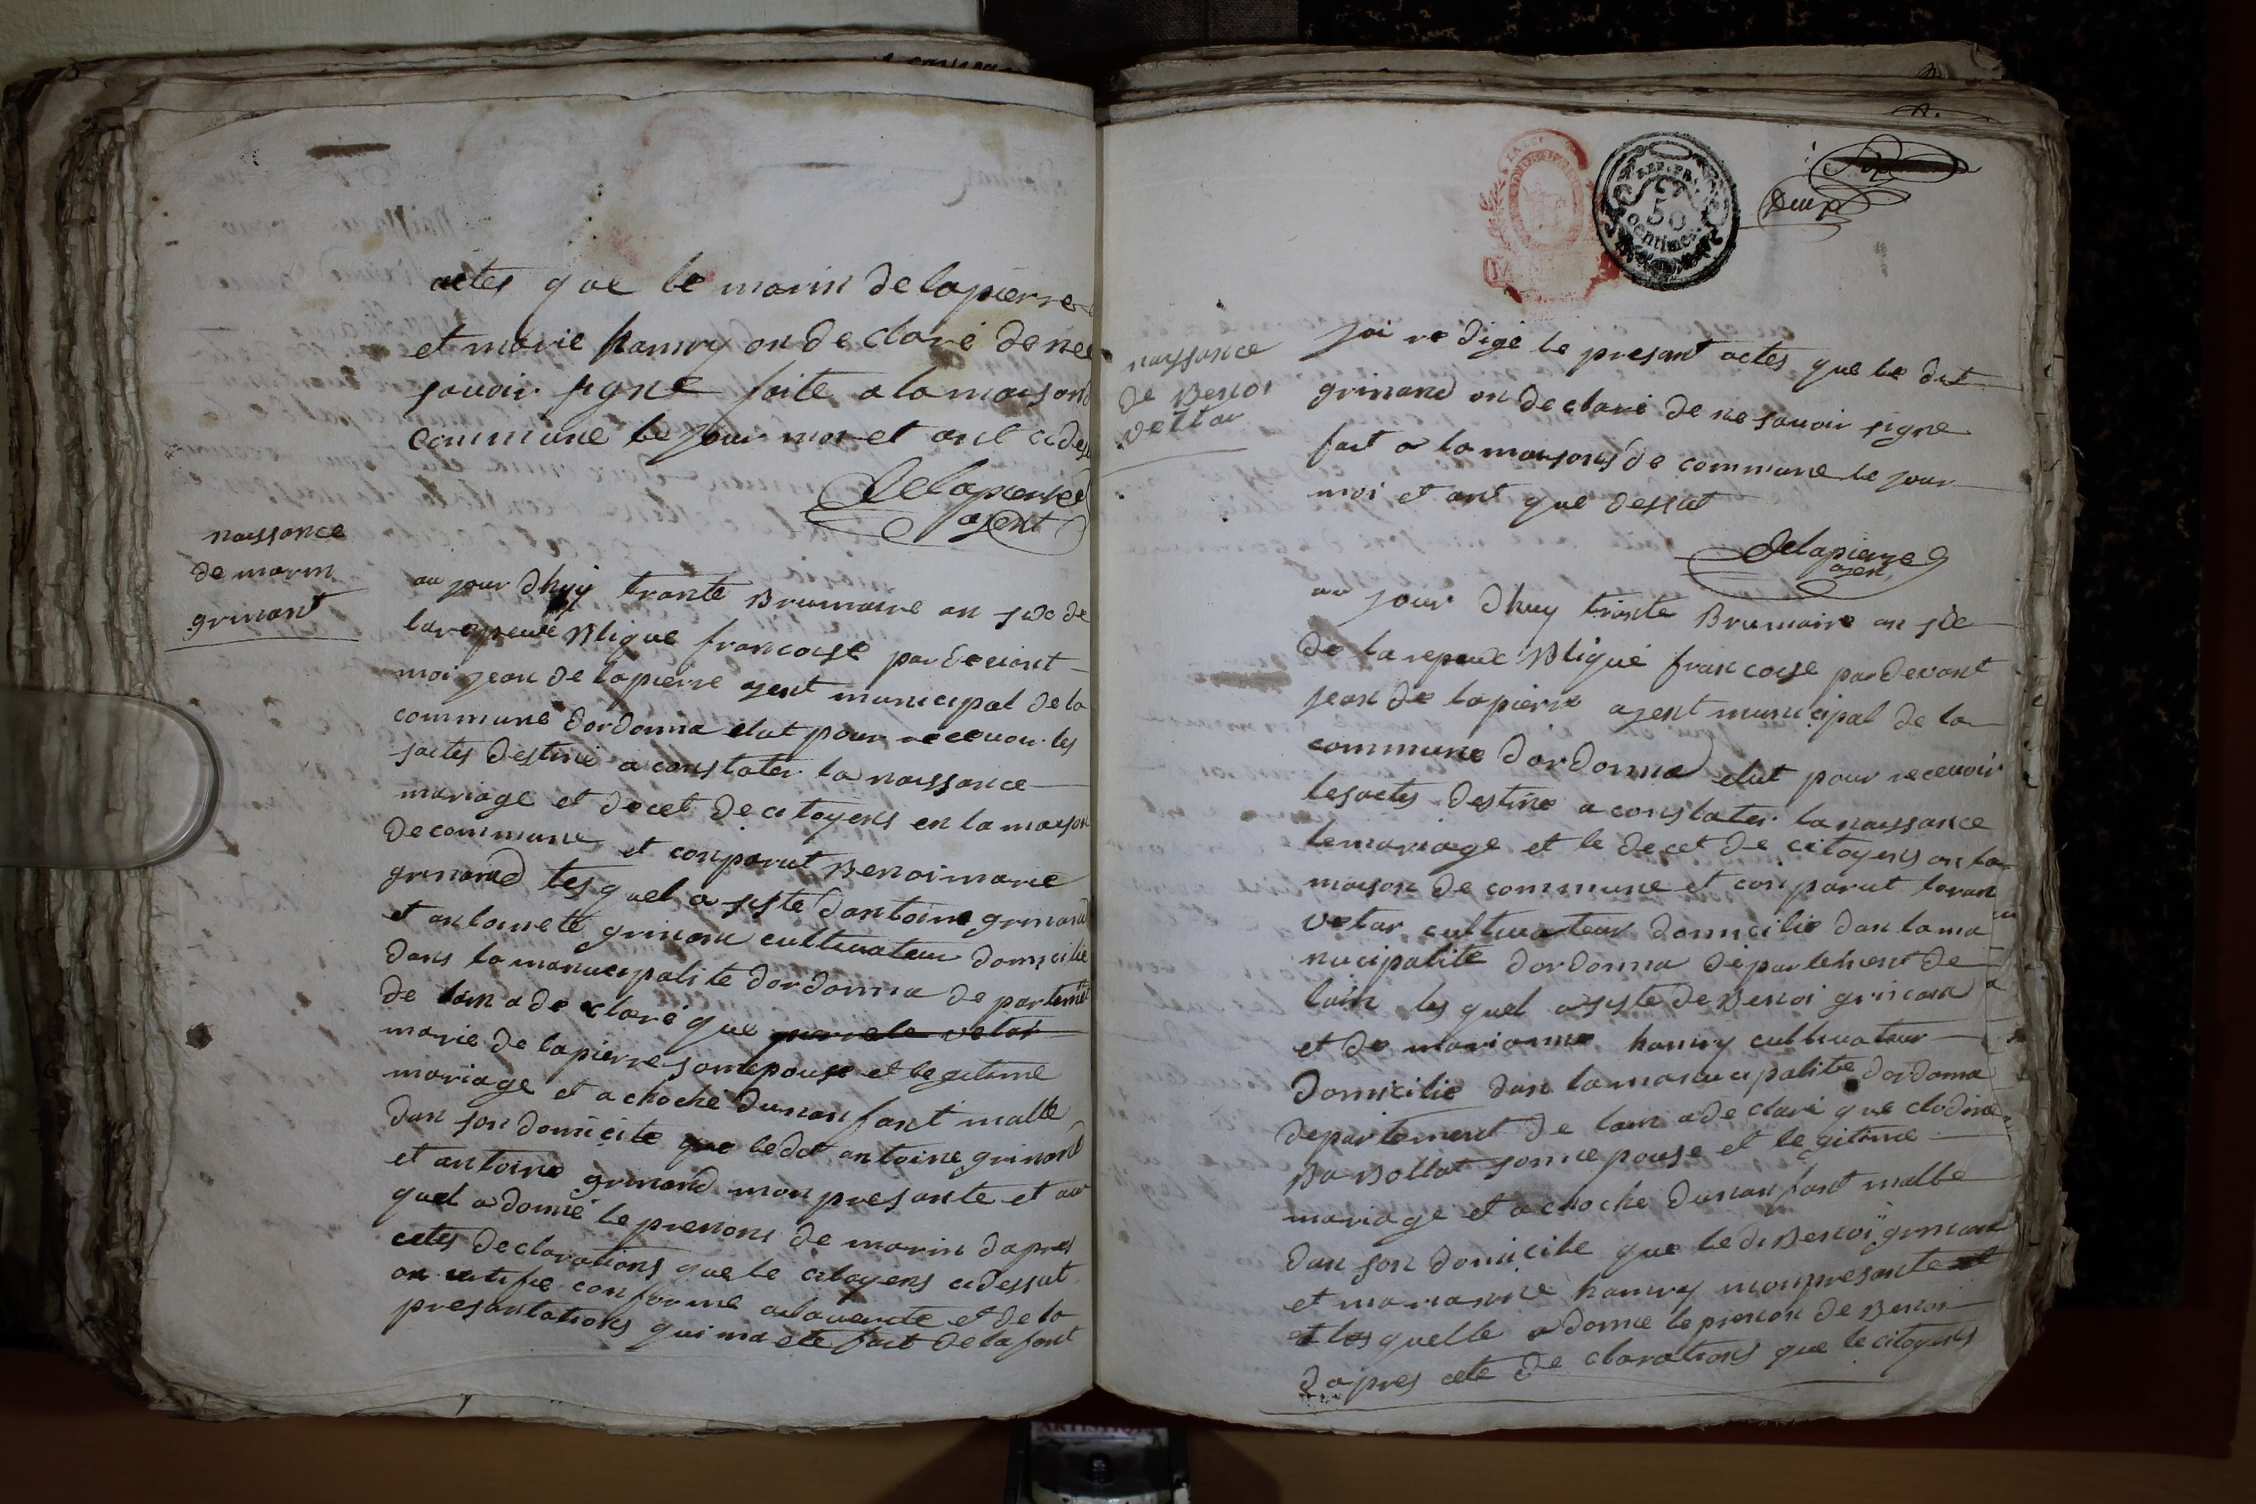 actes que le marin delapierre
et marie hamry on declaré de ne
savoir signé faite a la maisons
commune le jour moi et ant cides
Delapierre
agent
naissance
de marin
grinant
au jour dhuy trante Brumaire an side de
la repeue Blique francoise par devant
moi jean de lapierre agent municipal de la
commune dordonna elut pour recevoir les
sactes destiné a constater la naissance
mariage et decet de citoyens en la maison
de commune et conparut Benoi marie
grinand lesquel a siste dantoine grinand
et antoinete grinan cultivateur domicilié
dans la manucipalite dordonna de partemt
de lain a de claré que
marie de lapierre son epouse et legitime
mariage et a choché dunan fant malle
dan son domicile que ledit antoine grinand
et antoine grinand mon presante et au
quel a donné le prenons de marin dapres
cetes declarations que le citoyens cidessut
on certifie conforme a la verite et de la
presantations qui ma ete fait de lafant
50
Centimes
Deux
nayssance
de Benoi
vettar
jai redigé le presant actes que le dit
grinand on declaré de ne savoir signe
fait a la maisons de commune le jour
moi et ant que dessut
Delapierre
agen
au jour dhuy trante Brumaire an side
de la repeue Blique francoise par devant
jean de lapierre agent municipal de la
commune dordonna elut pour recevoir
les actes destine a constater la naissance
le mariage et le decet de citoyens an la
maison de commune et conparut
vetar cultivateur domicilié dan la ma
nucipalite dordonna departement de
lain les quel a siste de Benoi grinan
et de marianne hamry cultivateur
domicilié dan la manucipalite dordonna
departement de lain a declaré que clodine
Babollat sonne pouse et legitime
mariage et a choche dunan fant malle
dan son domicile que le di Benoi grinan
et marianne hamry mon presante
et les quelle a donne le prenon de Benoi
dapres cete declarations que le citoyens